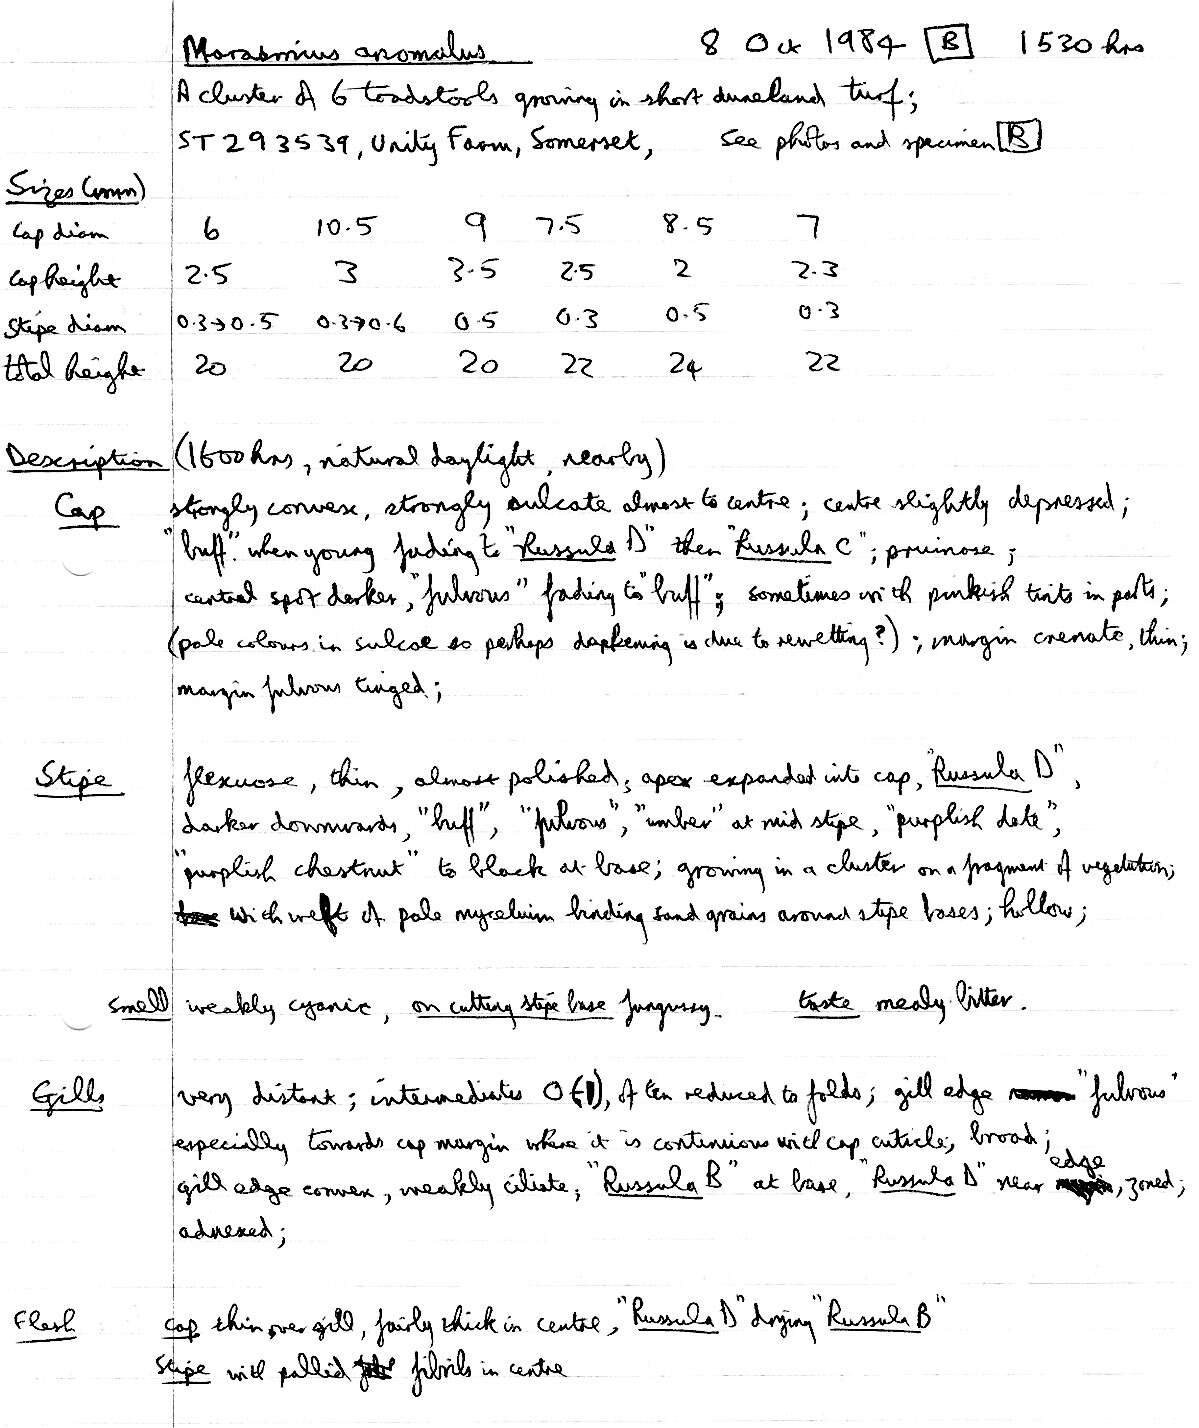 Marasmius anomalus 8 Oct 1984 B 1530 hrs
A cluster of 6 toadstools growing in short duneland turf;
ST 293539, Unity Farm, Somerset, see photos and specimen B
Sizes (mm)
Cap diam 6 10.5 9 7.5 8.5 7
Cap height 2.5 3 3.5 2.5 2 2.3
Stipe diam 0.3→0.5 0.3→0.6 0.5 0.3 0.5 0.3
total height 20 20 20 22 24 22
Description (1600 hrs, natural daylight, nearby)
Cap strongly convex, strongly sulcate almost to centre; centre slightly depressed;
"buff" when young fading to "Russula D" then "Russula C"; pruinose;
central spot darker, "fulvous" fading to "buff"; sometimes with pinkish tints in parts;
(pale colours in sulcae so perhaps darkening is due to rewetting?); margin crenate, thin;
margin fulvous tinged;
Stipe flexuose, thin, almost polished; apex expanded into cap, "Russula D",
darker downwards, "buff", "fulvous", "umber" at mid stipe, "purplish date",
"purplish chestnut" to black at base; growing in a cluster on a fragment of vegetation;
with weft of pale mycelium binding sand grains around stipe bases; hollow;
smell weakly cyanic, on cutting stipe base fungussy. taste mealy bitter.
Gills very distant; intermediates 0(-1), often reduced to folds; gill edge "fulvous"
especially towards cap margin where it is continuous with cap cuticle; broad;
gill edge convex, weakly ciliate; "Russula B" at base, "Russula D" near edge, zoned;
adnexed;
Flesh cap thin over gill, fairly thick in centre, "Russula D" drying "Russula B"
stipe with pallid fibrils in centre